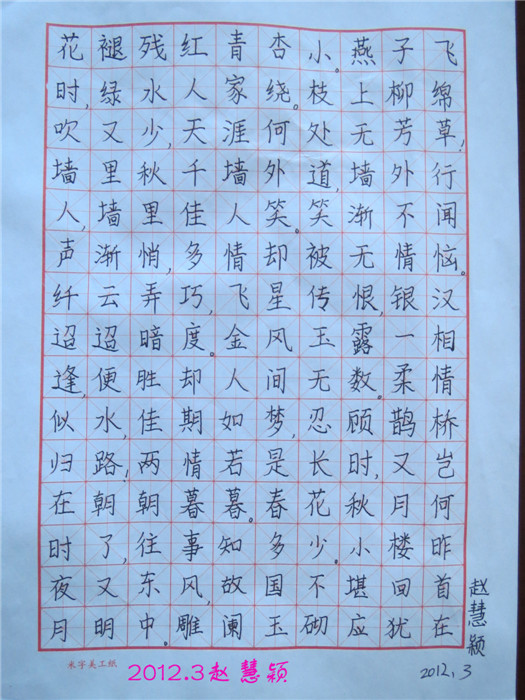 花褪残红青杏小。燕子飞
时,绿水人家绕。枝上柳绵
吹又少,天涯何处无芳草,
墙里秋千墙外道,墙外行
人,墙里佳人笑。笑渐不闻
声渐悄,多情却被无情恼。
纤云弄巧,飞星传恨,银汉
迢迢暗度。金风玉露一相
逢,便胜却人间无数。柔情
似水,佳期如梦,忍顾鹊桥
归路,两情若是长时,又岂
在朝朝暮暮。春花秋月何
时了,往事知多少。小楼昨
夜又东风,故国不堪回首
月明中。雕阑玉砌应犹在
赵慧颖
2012.3
米字美工纸
2012.3赵 慧颖